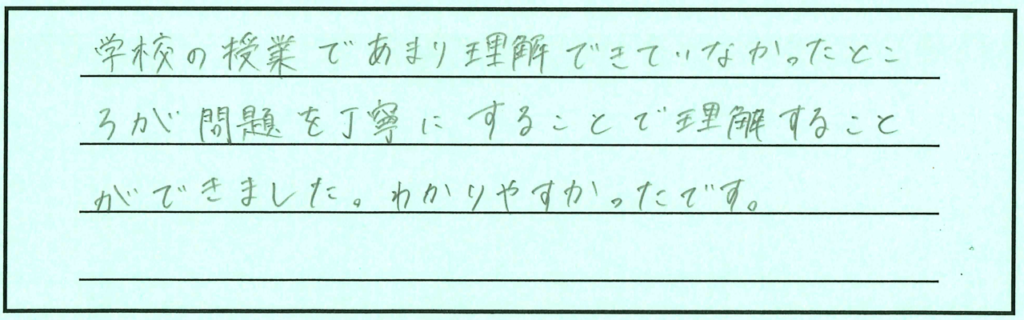 学校の授業であまり理解できていなかったとこ
ろが問題を丁寧にすることで理解すること
ができました。わかりやすかったです。